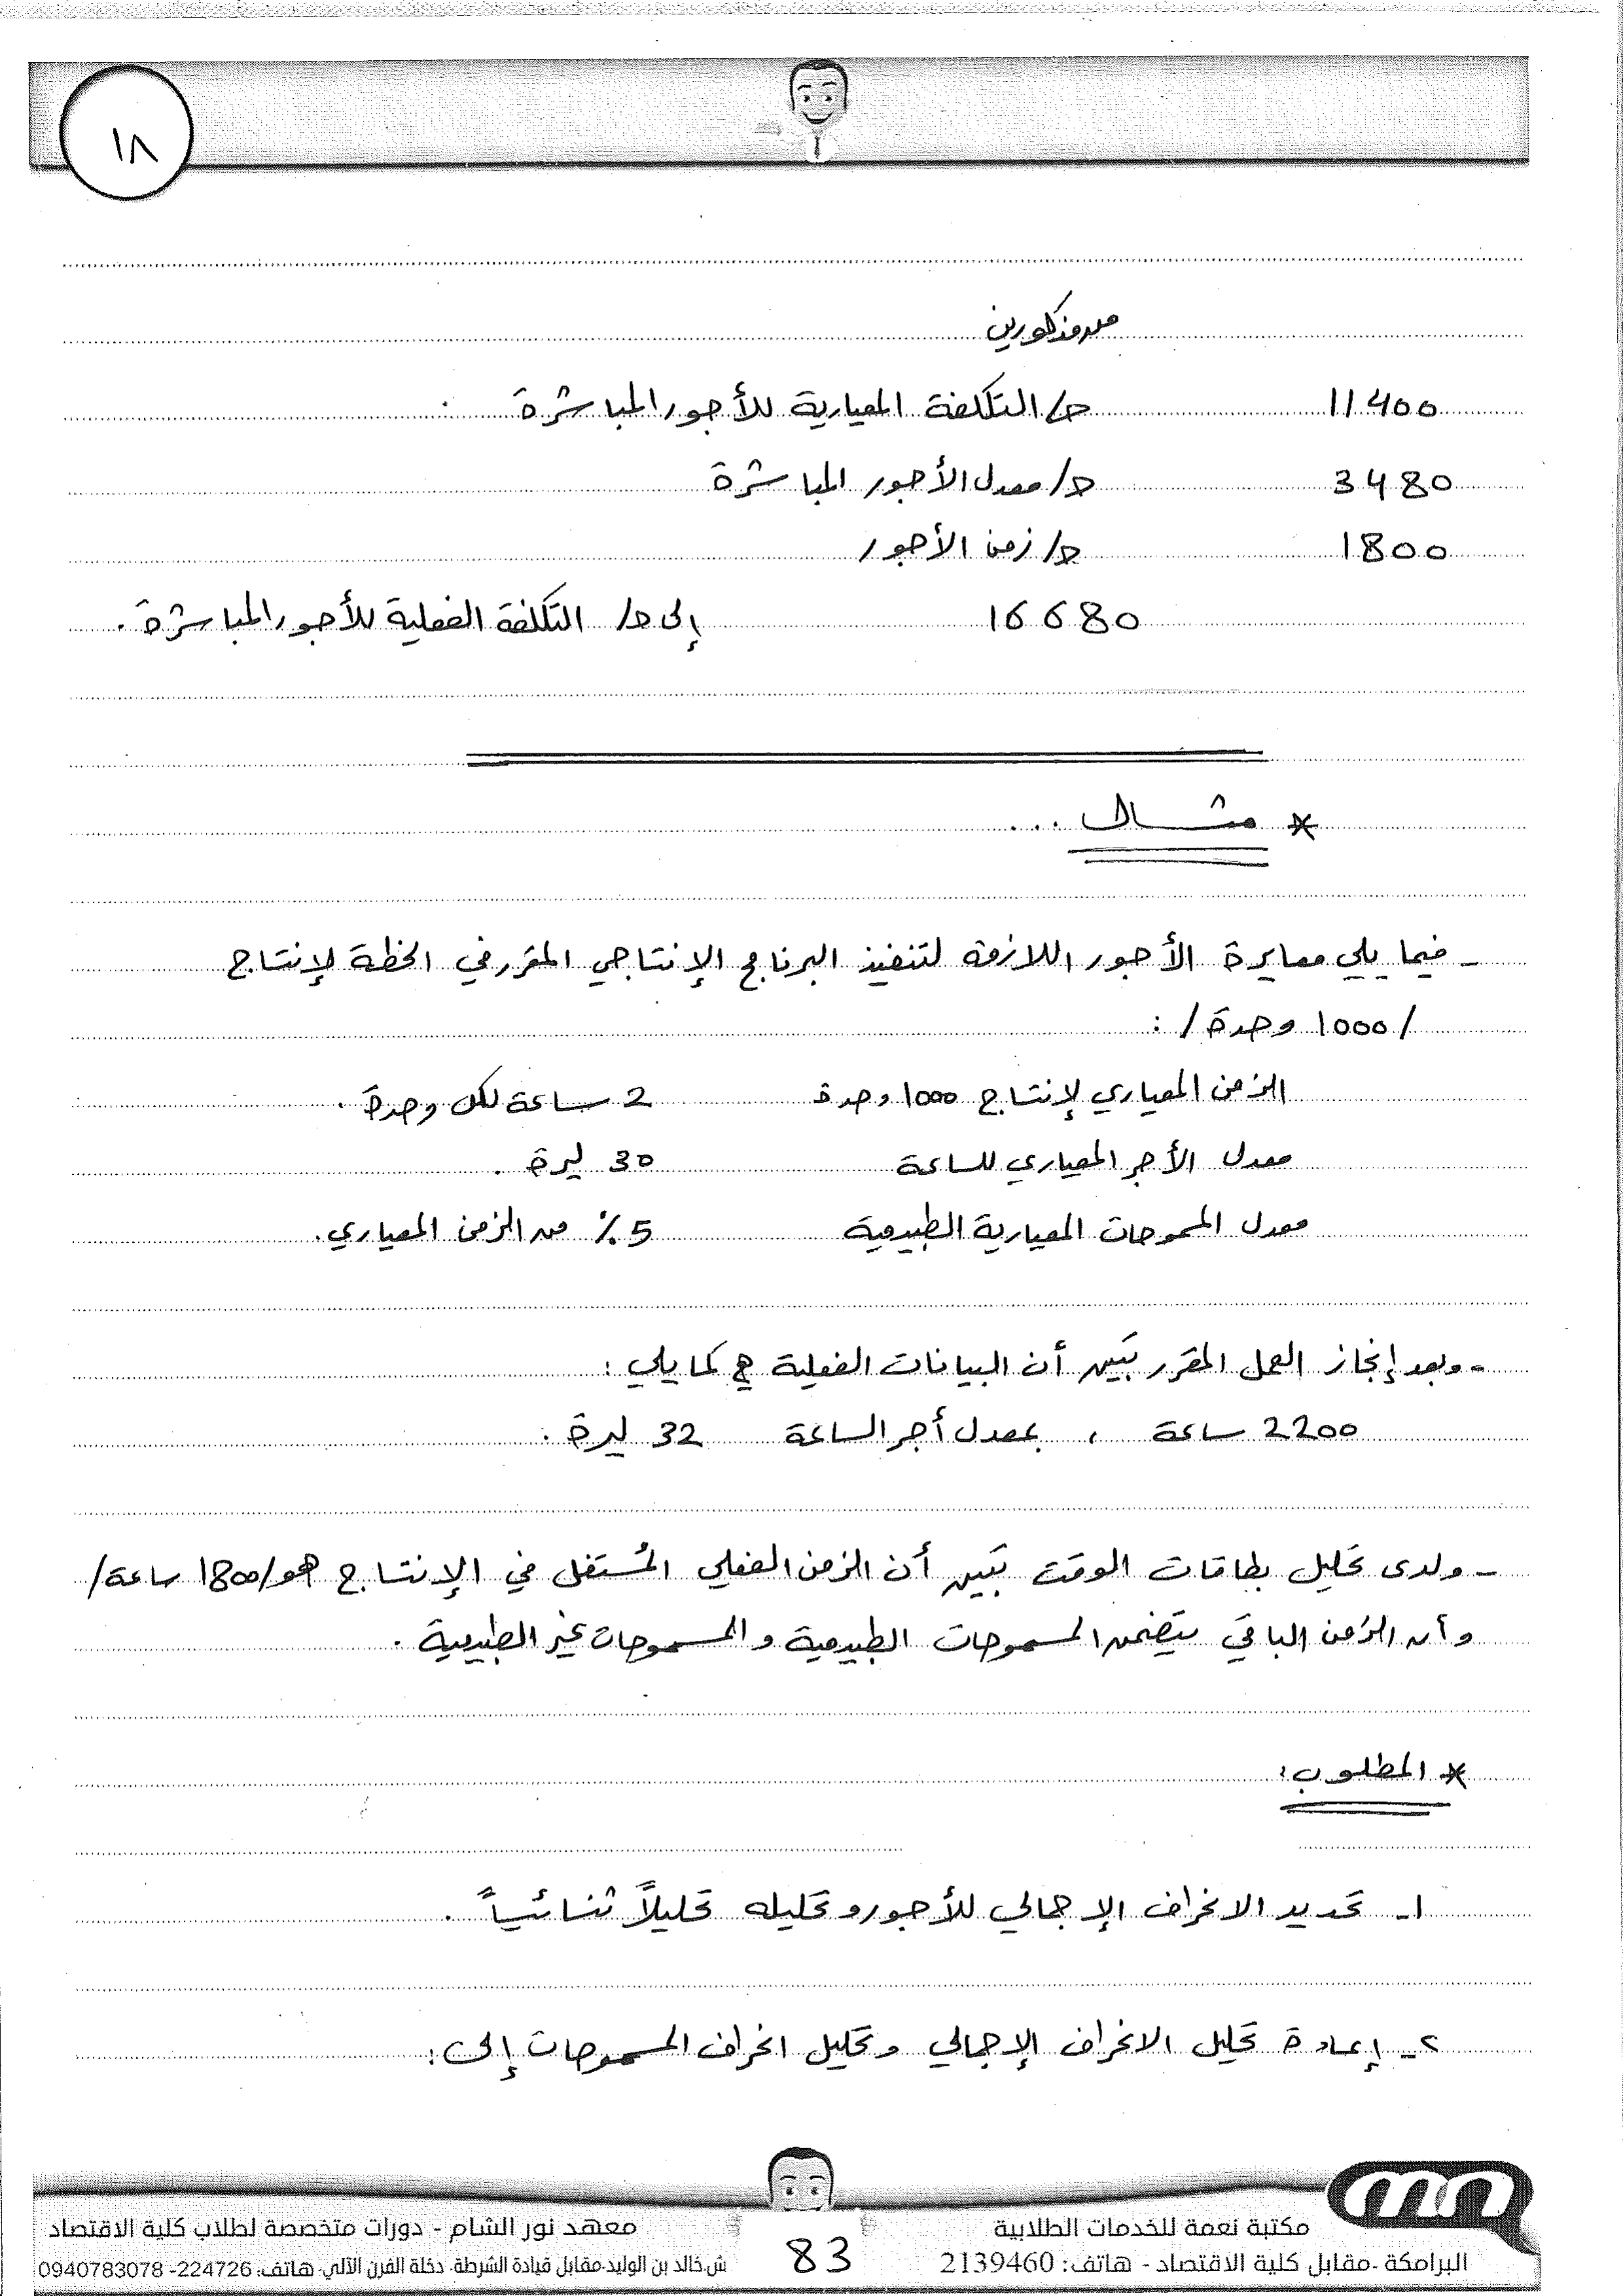 ١٨
من مذكورين
11400 ح/ التكلفة المعيارية للأجور المباشرة
3480 ح/ معدل الأجور المباشرة
1800 ح/ زمن الأجور
16680 إلى ح/ التكلفة الفعلية للأجور المباشرة.
* مثال ...
- فيما يلي معايرة الأجور اللازمة لتنفيذ البرنامج الإنتاجي المقرر في الخطة لإنتاج
/1000 وحدة/ :
الزمن المعياري لإنتاج 1000 وحدة 2 ساعة لكل وحدة.
معدل الأجر المعياري للساعة 30 ليرة.
معدل المسموحات المعيارية الطبيعية 5٪ من الزمن المعياري.
- وبعد إنجاز العمل المقرر تبين أن البيانات الفعلية هي كما يلي:
2200 ساعة ، بمعدل أجر الساعة 32 ليرة.
- ولدى تحليل بطاقات الوقت تبين أن الزمن الفعلي المُستغل في الإنتاج هو /1800 ساعة/
وأن الزمن الباقي يتضمن المسموحات الطبيعية والمسموحات غير الطبيعية.
* المطلوب:
1- تحديد الانحراف الإجمالي للأجور وتحليله تحليلاً ثنائياً.
٢- إعادة تحليل الانحراف الإجمالي وتحليل انحراف المسموحات إلى:
مكتبة نعمة للخدمات الطلابية
البرامكة -مقابل كلية الاقتصاد - هاتف: 2139460
83
معهد نور الشام - دورات متخصصة لطلاب كلية الاقتصاد
ش.خالد بن الوليد-مقابل قيادة الشرطة- دخلة الفرن الآلي-هاتف: 224726- 0940783078